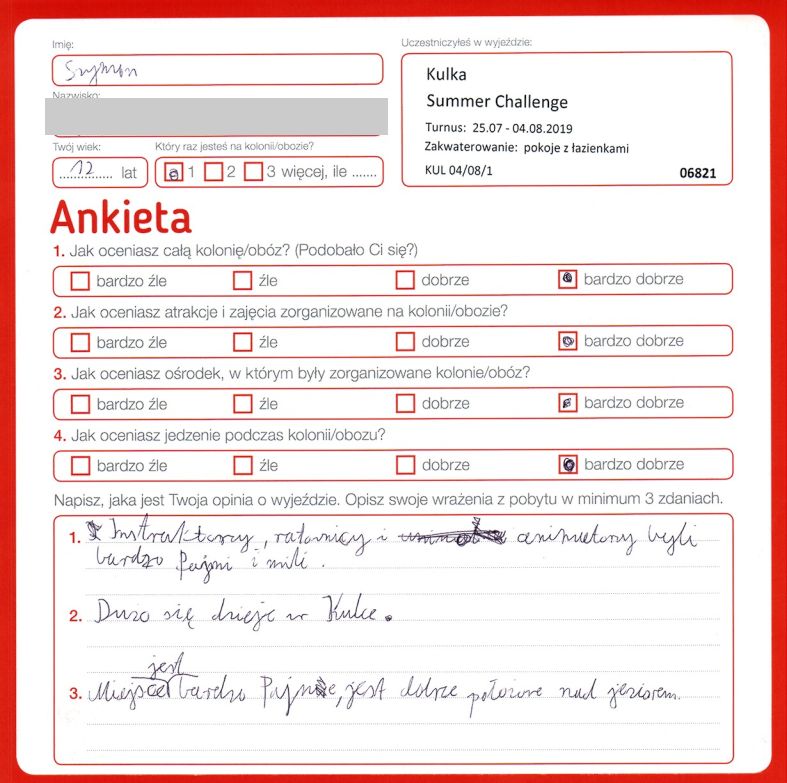 Imię:
Szymon
Uczestniczyłeś w wyjeździe:
Kulka
Summer Challenge
Turnus: 25.07 - 04.08.2019
Zakwaterowanie: pokoje z łazienkami
KUL 04/08/1
06821
Nazwisko:
Twój wiek:
12 lat
Który raz jesteś na kolonii/obozie?
1 2 3 więcej, ile .......
Ankieta
1. Jak oceniasz całą kolonię/obóz? (Podobało Ci się?)
bardzo źle źle dobrze bardzo dobrze
2. Jak oceniasz atrakcje i zajęcia zorganizowane na kolonii/obozie?
bardzo źle źle dobrze bardzo dobrze
3. Jak oceniasz ośrodek, w którym były zorganizowane kolonie/obóz?
bardzo źle źle dobrze bardzo dobrze
4. Jak oceniasz jedzenie podczas kolonii/obozu?
bardzo źle źle dobrze bardzo dobrze
Napisz, jaka jest Twoja opinia o wyjeździe. Opisz swoje wrażenia z pobytu w minimum 3 zdaniach.
1. Instraktorzy, ratownicy i animatorzy byli
bardzo fajni i mili.
2. Dużo się dzieje w Kulce.
jest
3. Miejsce bardzo fajne, jest dobrze położone nad jeziorem.